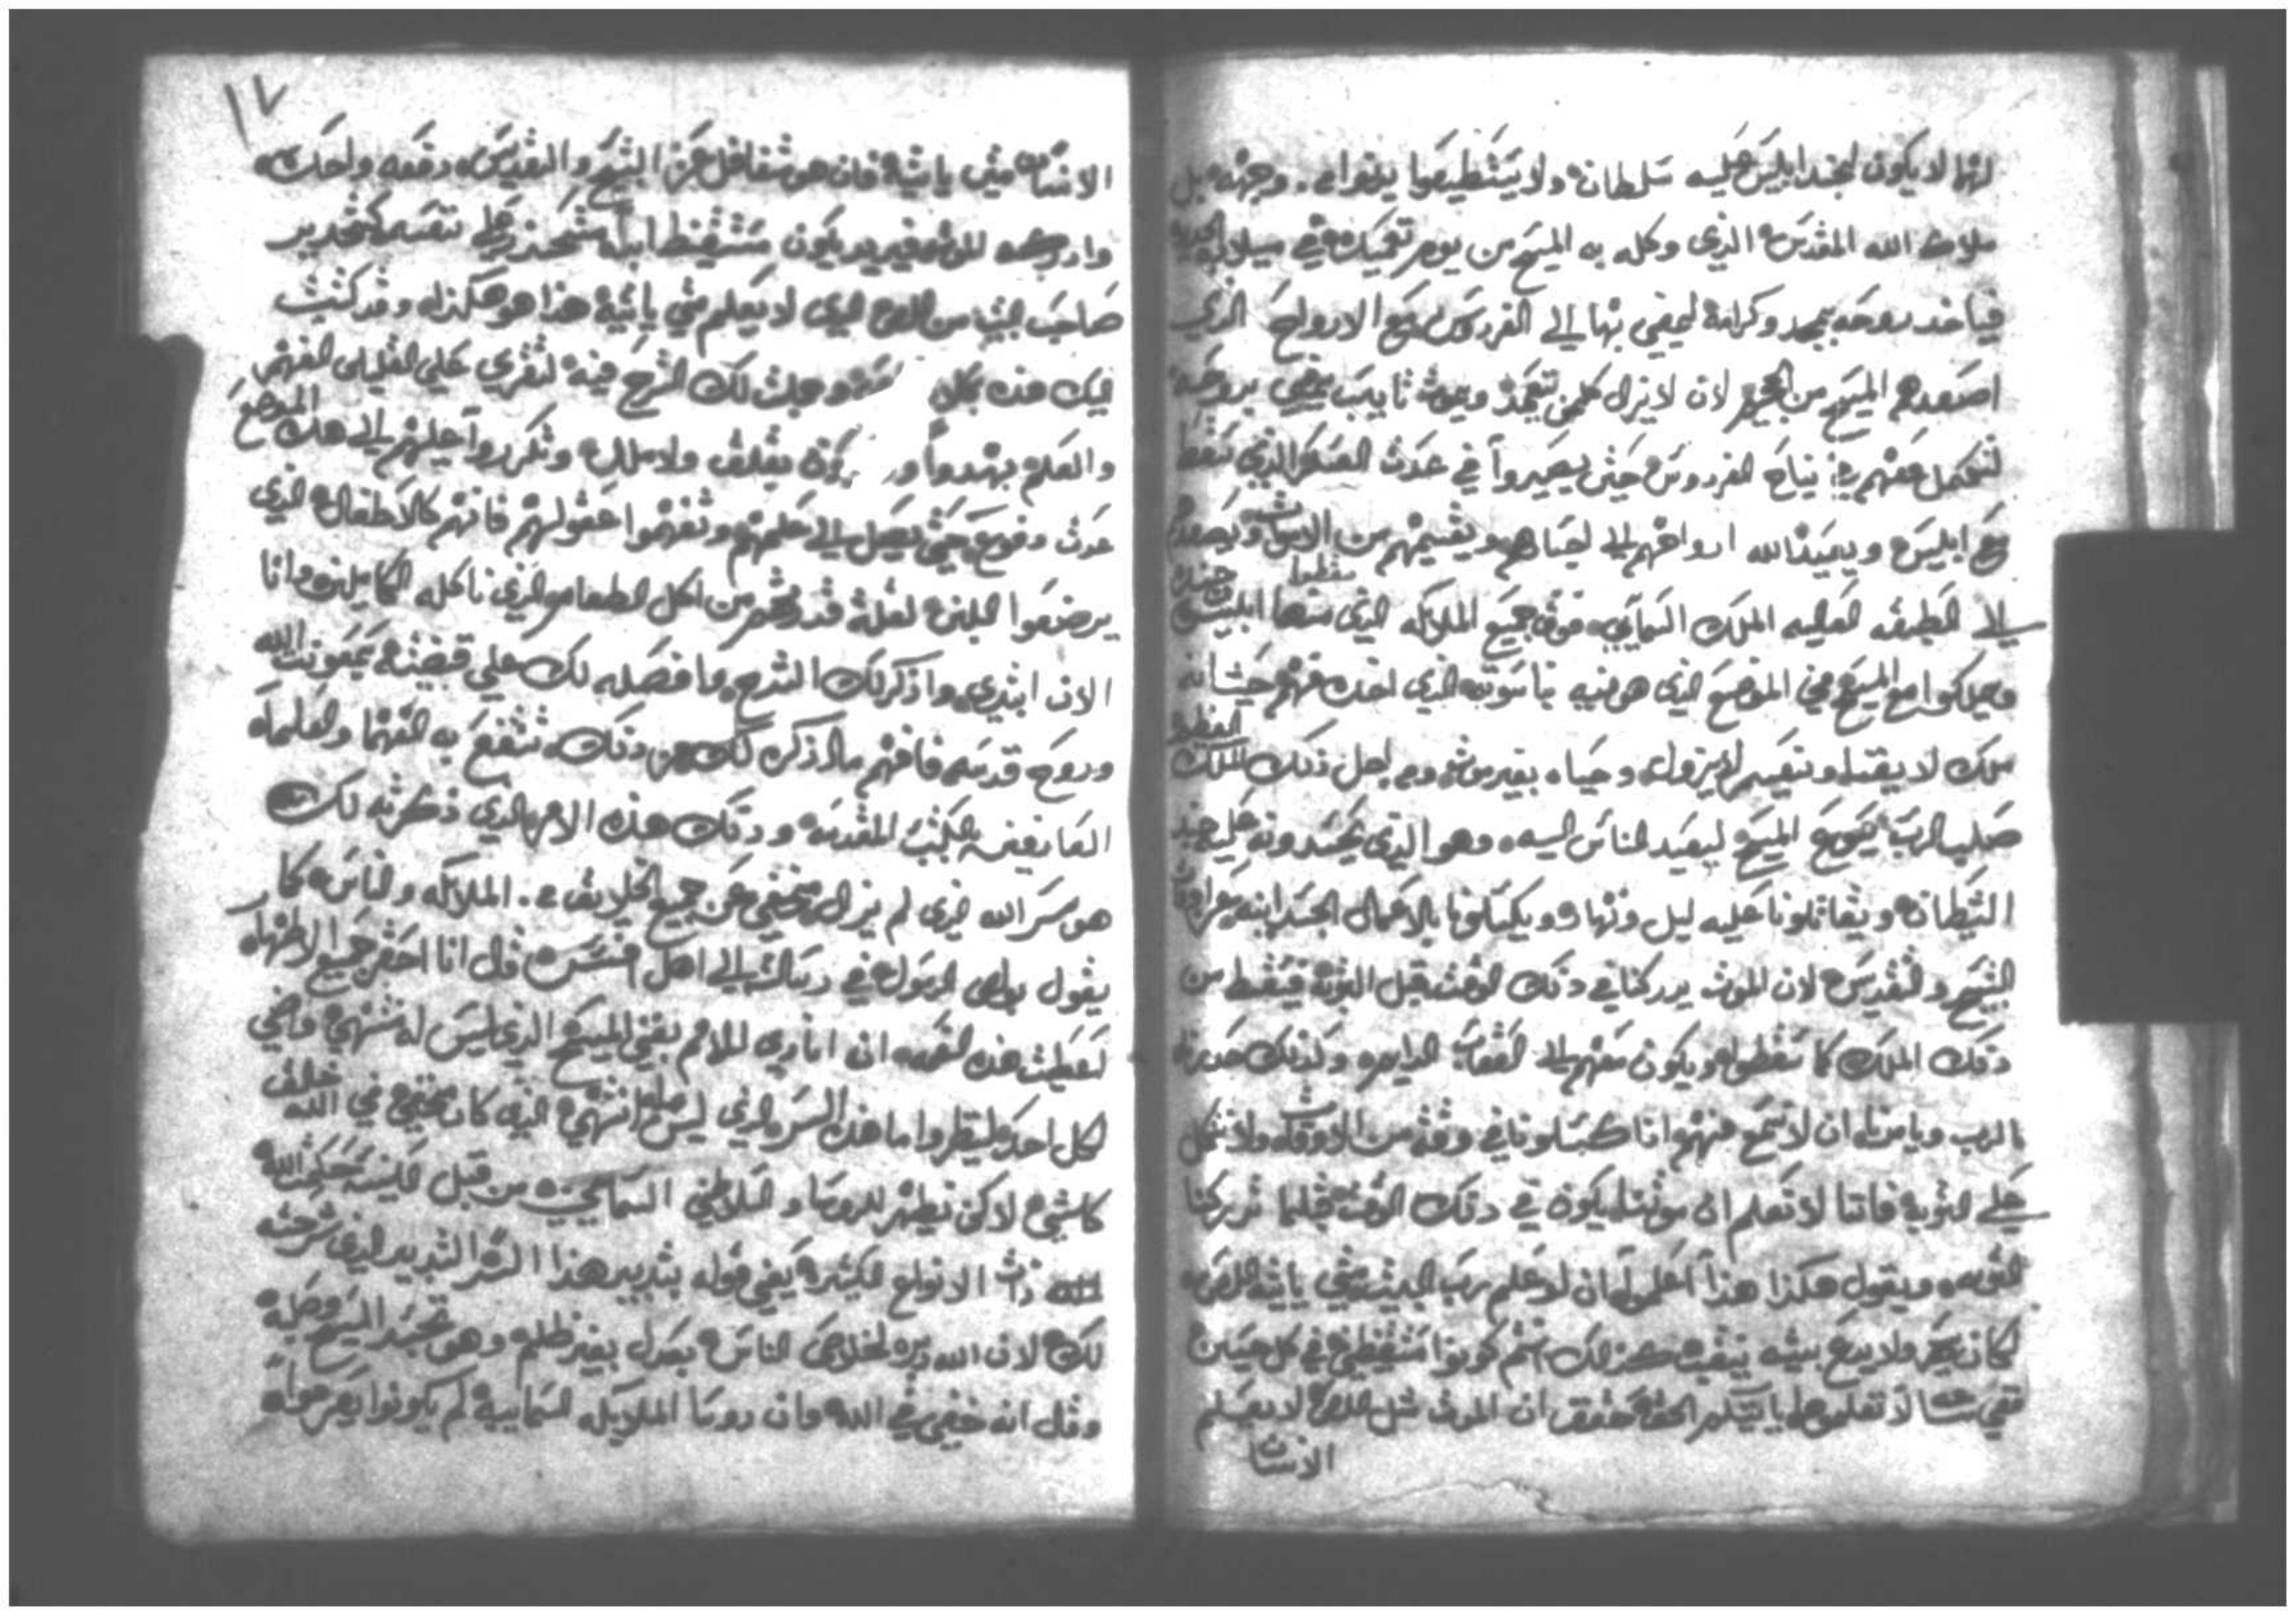 لانها لا يكون لجند ابليس عليه سلطانه ولا يستطيعوا ينظر الي وجهه بل
ملاك الله المقدس الذي وكله به المسيح من يوم تعميده في ميلاده الجديد
فياخد روحه بمجد وكرامة ليمضي بها الي الفردوس مع الارواح الذي
اصعدهم المسيح من الجحيم لان لا يزال كلمن تعمد ويموت تايب يمضي بروحه
لتكمل معهم في نياح الفردوس حتي يصيروا في عدت العسكر الذي سقط
مع ابليس ويعيد الله ارواحهم الي اجسادهم ويقيمهم من الاموات ويصعدهم
الي الطبقه العاليه الملك السمايي فوق جميع الملايكه الذي منها ابليس
سقطوا
جنده
ويملكوا مع المسيح في الموضع الذي هو فيه ناسوته الذي اخده منهم حيت انه
ملك لا يفنا ونعيم لا يزول وحياه بغير موت ومن اجل ذلك الملك
العظيم
صلب الرب يسوع المسيح ليعيد الناس اليه وهو الذي يحسدونه عليه جند
الشيطان ويقاتلونا عليه ليل ونهار ويكسلونا بالاعمال الجسدانيه عن اوقات
التسبيح والتقديس لان الموت يدركنا في ذلك الوقت قبل التوبة فنسقط من
ذلك الملك كما سقطوا ويكون معهم الي العقاب الدايم ولذلك حذرنا
الرب ويامرنا ان لا نسمع منهم اذا كسلونا في وقت من الاوقات ولا نكسل
علي التوبة فاننا لا نعلم ان موتنا يكون في ذلك الوقت قبلما تدركنا
التوبه ويقول هكذا هذا اعلموا ان لو علم رب البيت متي ياتيه اللص
لكان يسهر ولا يدع بيته ينقب كذلك انتم كونوا مستيقظين في كل حين
ففي ساعه لا تعلموها ياتيكم الحق حقق ان الموت مثل اللص لا يعلم
الانسان
١٧
الانسان متي ياتيه فان هو تغافل عن التسبيح والتقديس دفعه واحده
وادركه الموت فيريد يكون مستيقظ ابدا متحذر علي نفسه كتحدير
صاحب البيت من اللص الذي لا يعلم متي ياتيه هذا هو هكذا وقد كتبت
اليك هذه بكل وجعلت لك الشرح فيه لتقري علي القليلي الفهم
والعلم بهدوا و بغير قلق ولا ملل وتكرروا عليهم الي هذه الموضع
عدت دفوع حتي يصل الي علمهم وتفهموا عقولهم فانهم كالاطفال الذي
يرضعوا اللبن لقلة قدرتهم من اكل الطعام الذي ناكله الكاملين وانا
الان ابتدي واذكر لك الشرح وافصله لك علي قضيته بمعونت الله
وروح قدسه فافهم ما اذكره لك من ذلك تنتفع به الفهما والعلماء
العارفين بالكتب المقدسه وذلك هذه الامر الذي ذكرته لك
هو سر الله الذي لم يزل مخفي عن جميع الخلايق . الملايكه والناس كما
يقول بولس الرسول في رسالته الي اهل افسس قال انا احقر جميع الاطهار
اعطيت هذه النعمه ان انادي للامم بغني المسيح الذي ليس له منتهي واضي
لكل احد لينظروا ما هذه السر الذي ليس له انتهي الذي كان مخفي في الله خالق
كل شي لاكن تظهر للروسا والسلاطين السماييين من قبل الكنيسة حكمت الله
ذات الانواع الكثيره يعني قوله بتدبير هذا السر التدبير الذي شرحته
لك لان الله دبره لخلاص الناس بعدل بغير ظلم وهو تجسد المسيح وصلبه
وقال انه خفي في الله وان روسا الملايكه السماييه لم يكونوا يعرفوه